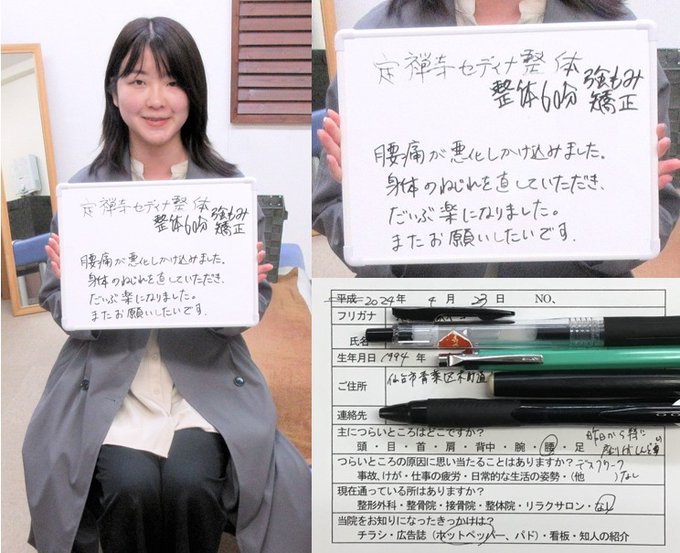 定禅寺セディナ整体
整体60分 強もみ
矯正
腰痛が悪化しかけ込みました。
身体のねじれを直していただき、
だいぶ楽になりました。
またお願いしたいです.
定禅寺セディナ整体
整体60分 強もみ
矯正
腰痛が悪化しかけ込みました。
身体のねじれを直していただき、
だいぶ楽になりました。
またお願いしたいです.
平成 2024年 4月 23日 NO、
フリガナ
氏名
生年月日 1994年
ご住所 仙台市青葉区木町通
連絡先
主につらいところはどこですか?
昨日から特に
頭・目・首・肩・背中・腕・腰・足
つらいところの原因に思い当たることはありますか? デスクワーク
事故、けが・仕事の疲労・日常的な生活の姿勢・(他 )なし
現在通っている所はありますか?
整形外科・整骨院・接骨院・整体院・リラクサロン・なし
当院をお知りになったきっかけは?
チラシ・広告誌(ホットペッパー、パド)・看板・知人の紹介